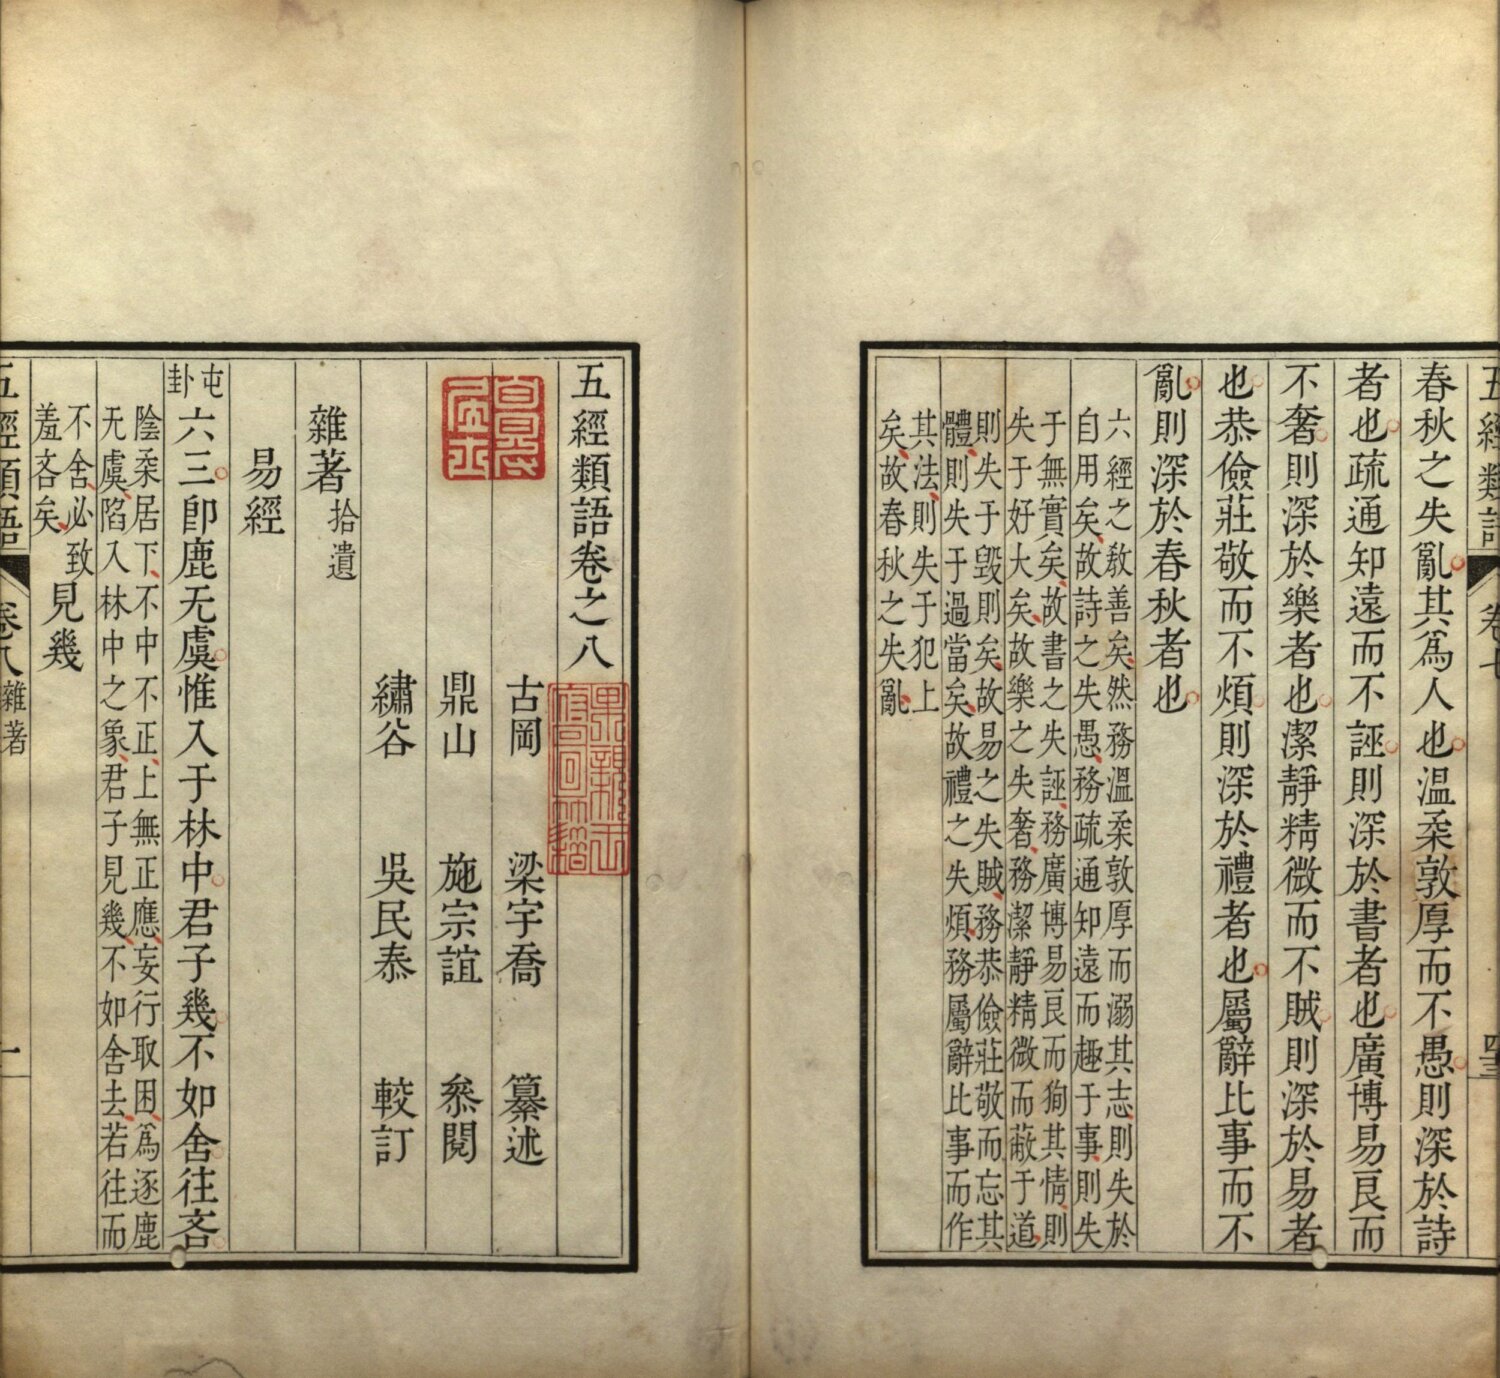 五經類語
卷七
四三
春秋之失亂其爲人也溫柔敦厚而不愚則深於詩
者也疏通知遠而不誣則深於書者也廣博易良而
不奢則深於樂者也潔靜精微而不賊則深於易者
也恭儉莊敬而不煩則深於禮者也屬辭比事而不
亂則深於春秋者也
六經之敎善矣然務溫柔敦厚而溺其志則失於
自用矣故詩之失愚務疏通知遠而趣于事則失
于無實矣故書之失誣務廣博易良而狥其情則
失于好大矣故樂之失奢務潔靜精微而蔽于道
則失于毀則矣故易之失賊務恭儉莊敬而忘其
體則失于過當矣故禮之失煩務屬辭比事而作
其法則失于犯上
矣故春秋之失亂
五經類語卷之八
古岡 梁宇喬 纂述
鼎山 施宗誼 叅閱
繡谷 吳民泰 較訂
雜著拾遺
易經
屯卦六三卽鹿无虞惟入于林中君子幾不如舍往吝
陰柔居下不中不正上無正應妄行取困爲逐鹿
无虞陷入林中之象君子見幾不如舍去若往而
不舍必致
羞吝矣
見幾
五經類語
卷八
雜著
一